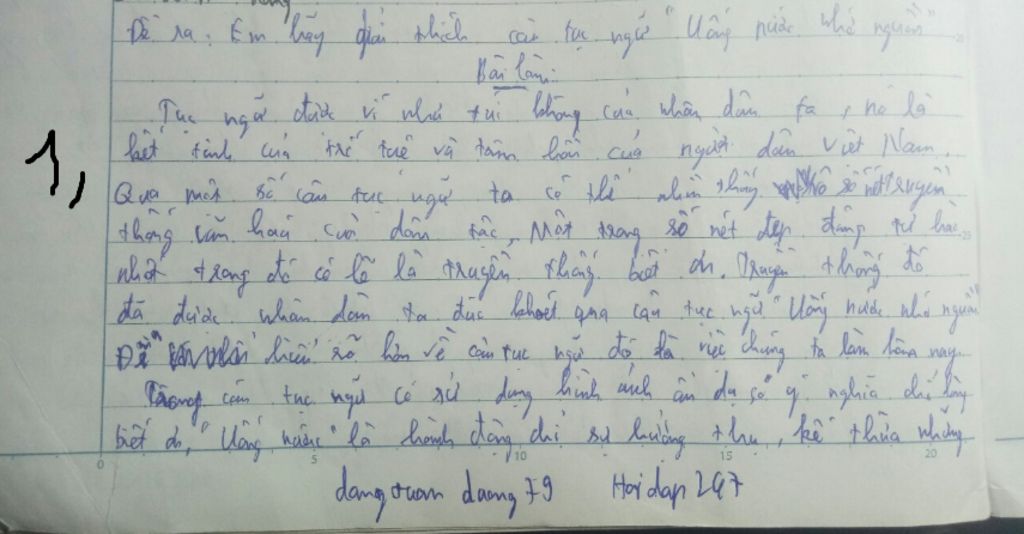 Đề ra: Em hãy giải thích câu tục ngữ "Uống nước nhớ nguồn"
Bài làm:
Tục ngữ được ví như túi không của nhân dân ta, nó là
kết tinh của trí tuệ và tâm hồn của người dân Việt Nam.
1, Qua một số câu tục ngữ ta có thể nhìn thấy vô số nét truyền
thống văn hoá của dân tộc, Một trong số nét đẹp đáng tự hào
nhất trong đó có lẽ là truyền thống biết ơn. Truyền thống đó
đã được nhân dân ta đúc khoết qua câu tục ngữ "Uống nước nhớ nguồn"
Để hiểu rõ hơn về câu tục ngữ đó là việc chúng ta làm hôm nay.
Trong câu tục ngữ có sử dụng hình ảnh ẩn dụ có ý nghĩa chỉ lòng
biết ơn, "Uống nước" là hành động chỉ sự hưởng thụ, kế thừa những
0 5 10 15 20
dangtuan daong 79 Hoidap 247